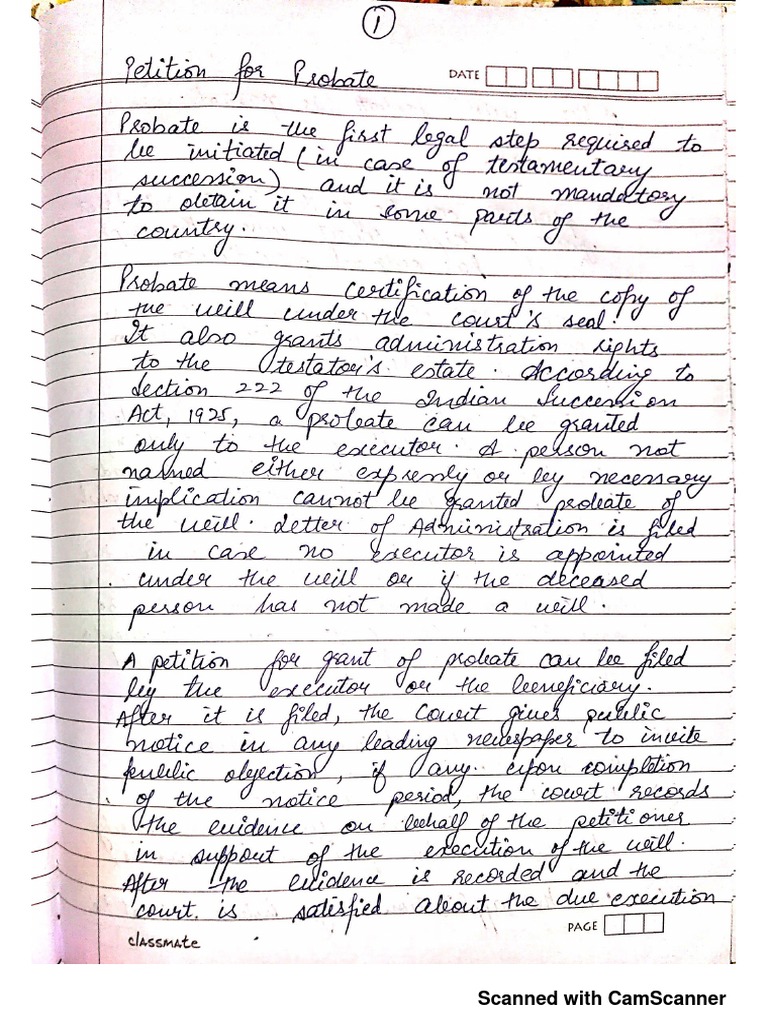 1
Petition for Probate
DATE
Probate is the first legal step required to
be initiated (in case of testamentary
succession) and it is not mandatory
to obtain it in some parts of the
country.
Probate means certification of the copy of
the will under the court's seal.
It also grants administration rights
to the testator's estate. According to
Section 222 of the Indian Succession
Act, 1925, a probate can be granted
only to the executor. A person not
named either expressly or by necessary
implication cannot be granted probate of
the will. Letter of Administration is filed
in case no executor is appointed
under the will or if the deceased
person has not made a will.
A petition for grant of probate can be filed
by the executor or the beneficiary.
After it is filed, the Court gives public
notice in any leading newspaper to invite
public objection, if any. upon completion
of the notice period, the court records
the evidence on behalf of the petitioner
in support of the execution of the will.
After the evidence is recorded and the
court is satisfied about the due execution
PAGE
classmate
Scanned with CamScanner